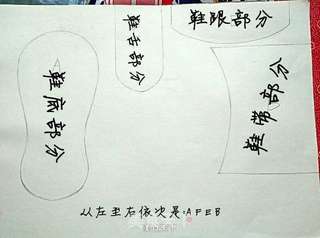 鞋底部分
鞋舌部分
鞋跟部分
鞋带部分
从左至右依次是:AFEB